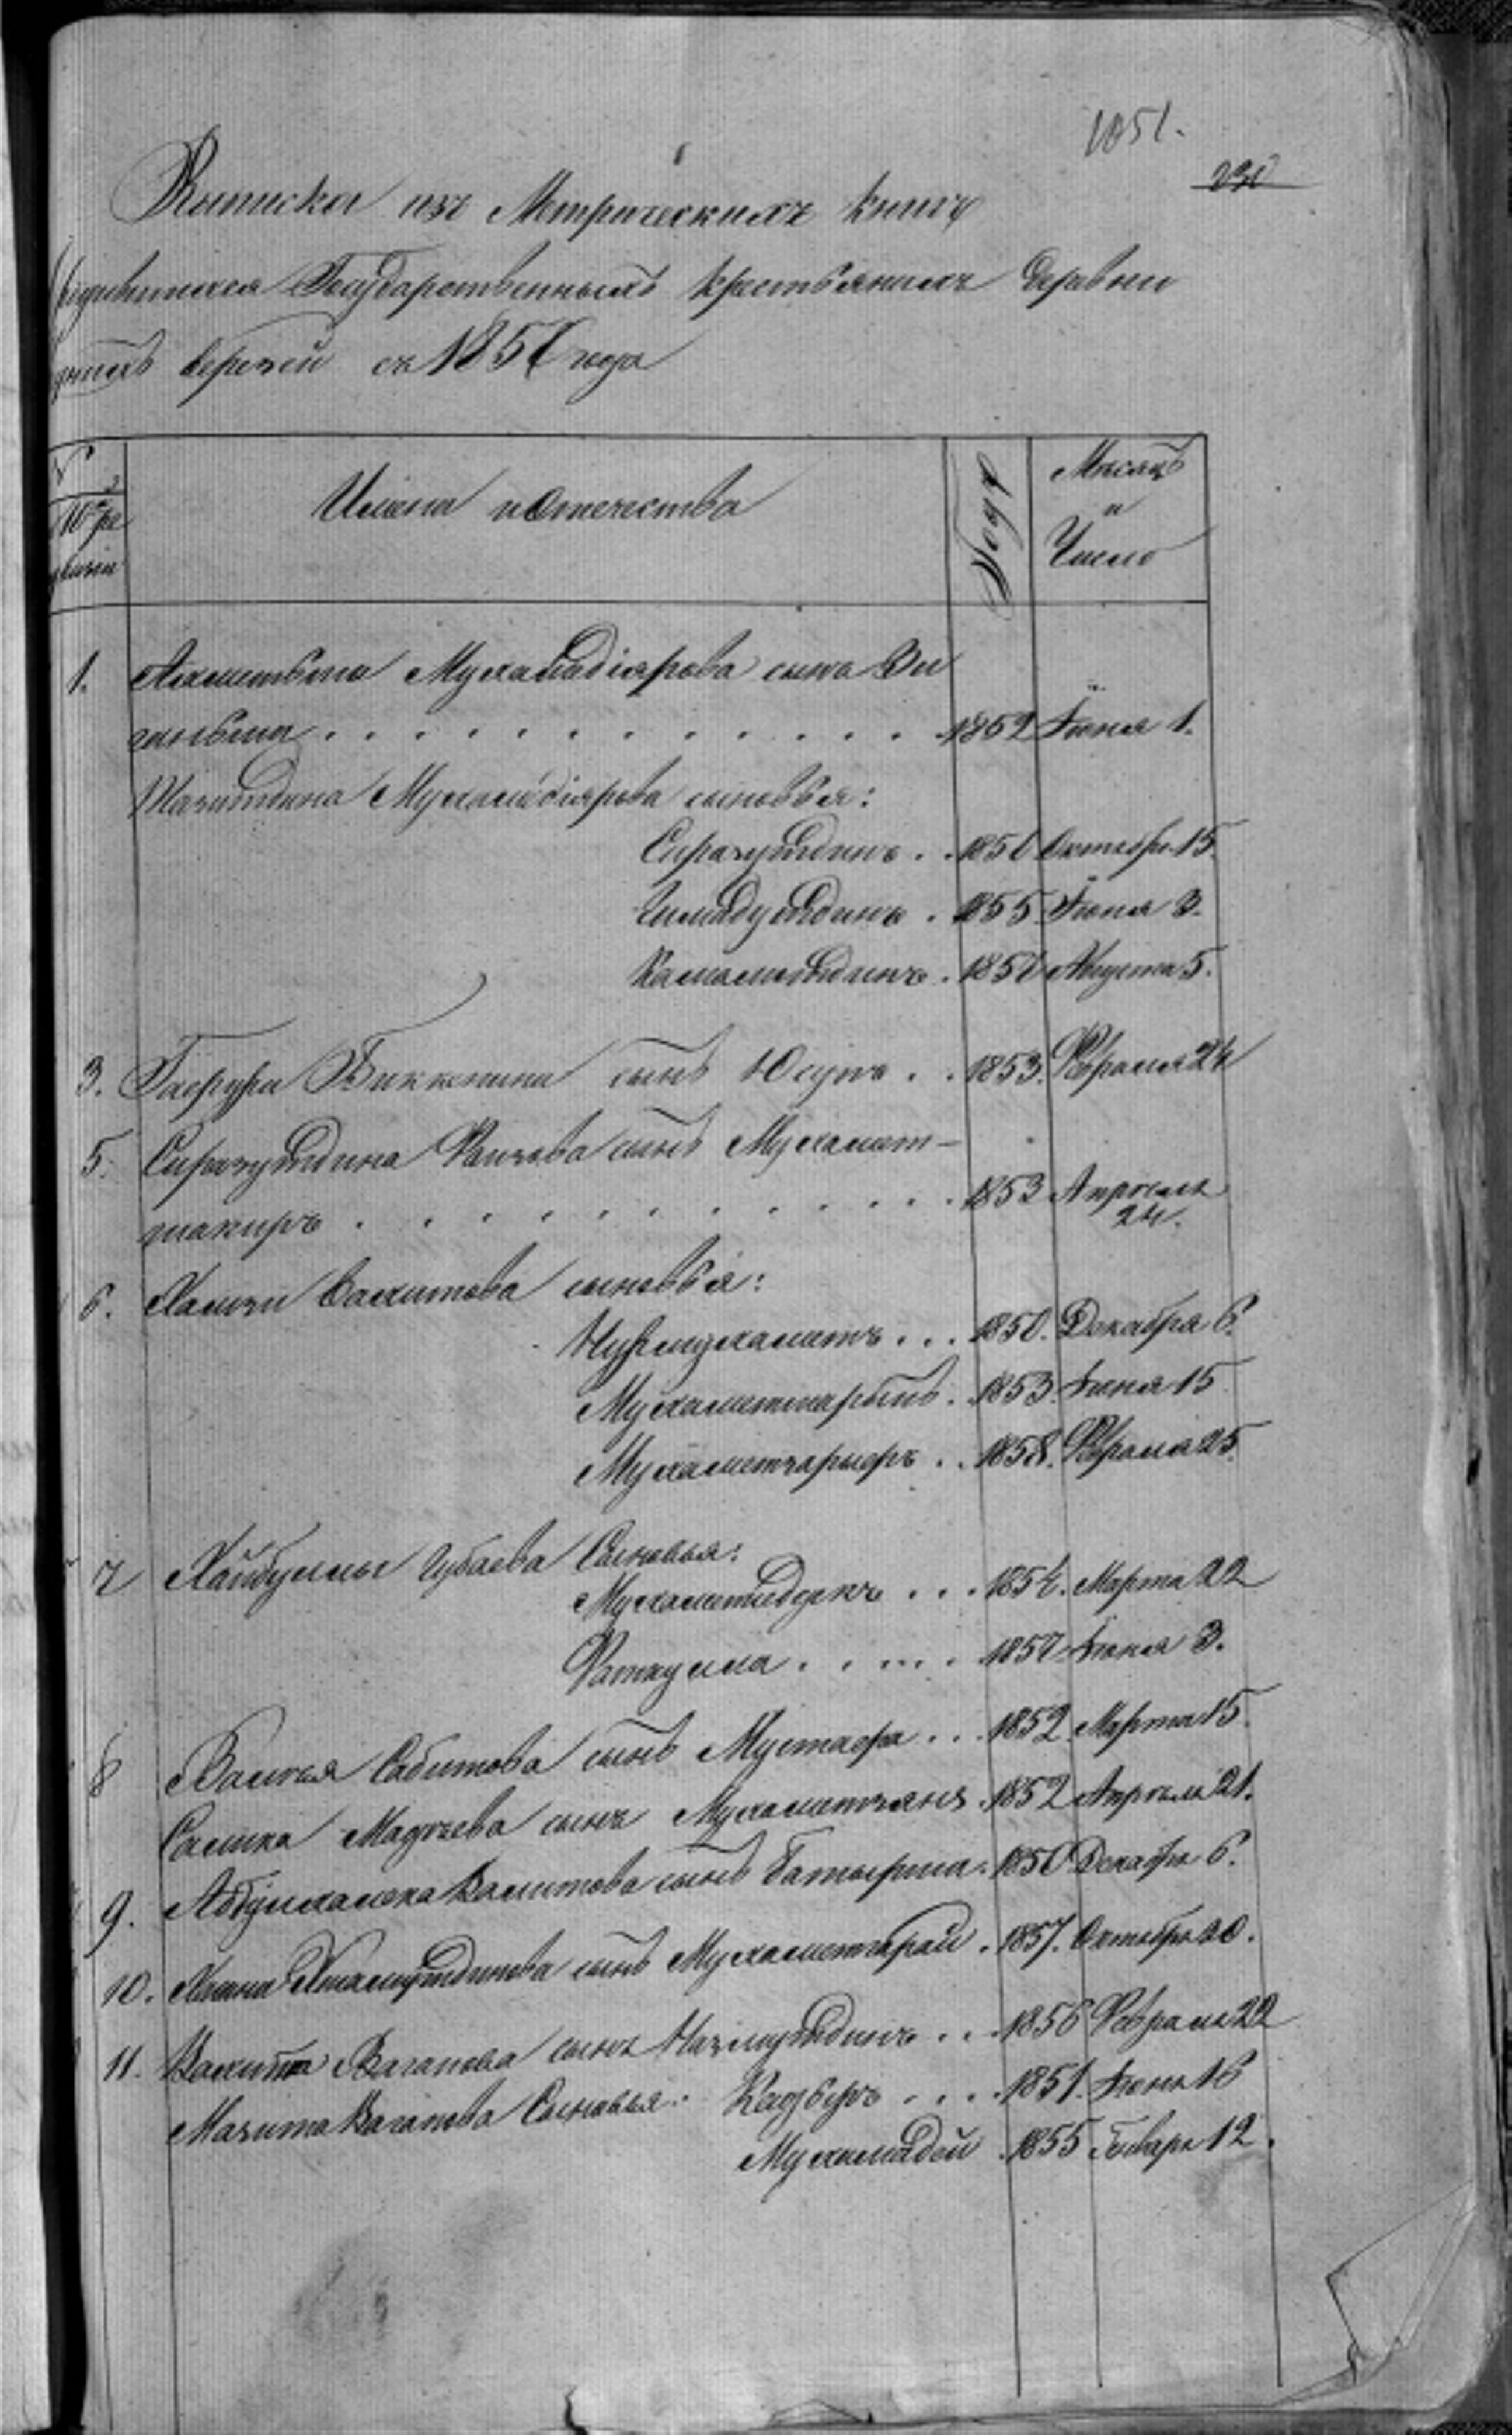 1051.
Выписка изъ Метрическихъ книгъ
Государственныхъ крестьянъ деревни
съ 185 года
№
10 ре
визіи
Имена и отечества
Годъ
Мѣсяцъ
и
Число
1. Ахметьяна Мухамадіярова сынъ Зи
ганьша . . . . . . . . . . . . 1852 Іюня 1.
Мухамадіярова сыновья:
Сиразутдинъ . . 1850 Октября 15.
. 1855 Іюня 3.
Камалетдинъ . 185 Августа 5.
3. Гафура Биккинина сынъ Юсупъ . . 1853. Февраля 24
5. Сиразутдина сынъ Мухамет-
шакиръ . . . . . . . . . . . 1853 Апрѣля
24.
6. сыновья:
Нурмухаметъ . . . 1850. Декабря 6.
Мухаметшарыпъ . 1853. Іюня 15
Мухаметзарыфъ . . 1858. Февраля 25.
7 Хайбуллы Губаева Сыновья:
. . . 1854. Марта 22
Фаткулла . . . . . 1857 Іюня 3.
8 Сабитова сынъ Мустафа . . . 1852 Марта 15.
Салиха сынъ Мухаметзянъ . 1852 Апрѣля 21.
9. Валитова сынъ Батырша. 1850 Декабря 6.
10. сынъ Мухаметгарай . 1857. Октября 20.
11. Вахита Ваганова сынъ Назмутдинъ . . . 1856 Февраля 22
Мазита Ваганова Сыновья: Кадыръ . . . . 1851. Іюня 16
Мухамадей . 1855 Января 12.